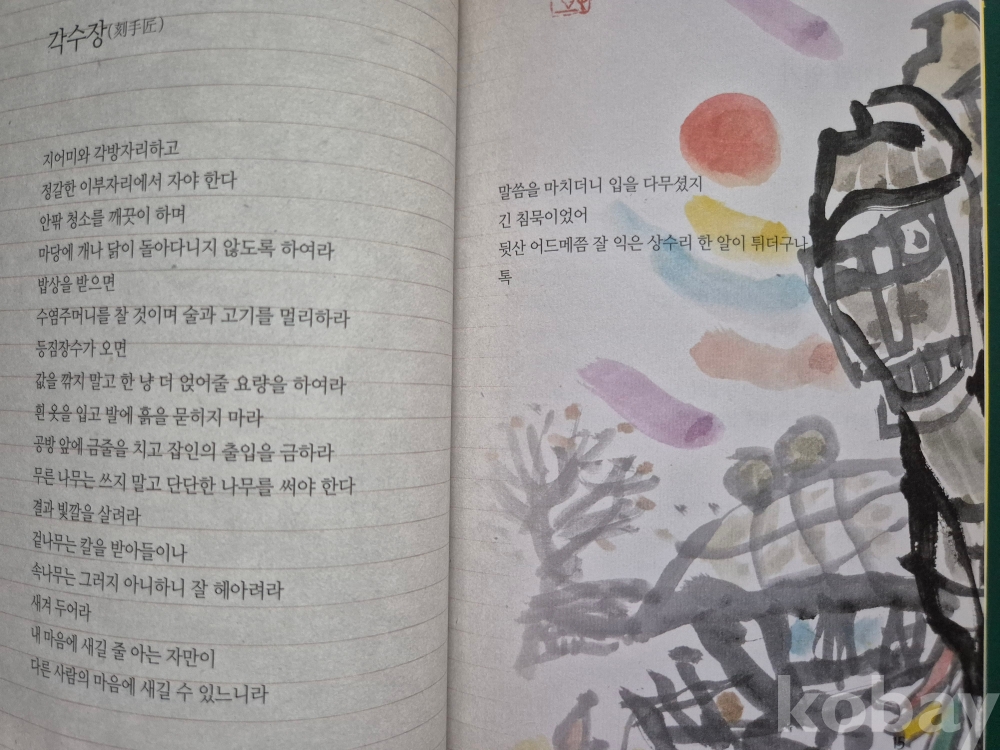 각수장(刻手匠)
지어미와 각방자리하고
정갈한 이부자리에서 자야 한다
안팎 청소를 깨끗이 하며
마당에 개나 닭이 돌아다니지 않도록 하여라
밥상을 받으면
수염주머니를 찰 것이며 술과 고기를 멀리하라
등짐장수가 오면
값을 깎지 말고 한 냥 더 얹어줄 요량을 하여라
흰 옷을 입고 발에 흙을 묻히지 마라
공방 앞에 금줄을 치고 잡인의 출입을 금하라
무른 나무는 쓰지 말고 단단한 나무를 써야 한다
결과 빛깔을 살려라
겉나무는 칼을 받아들이나
속나무는 그러지 아니하니 잘 헤아려라
새겨 두어라
내 마음에 새길 줄 아는 자만이
다른 사람의 마음에 새길 수 있느니라
말씀을 마치더니 입을 다무셨지
긴 침묵이었어
뒷산 어드메쯤 잘 익은 상수리 한 알이 튀더구나
톡
15
kobay